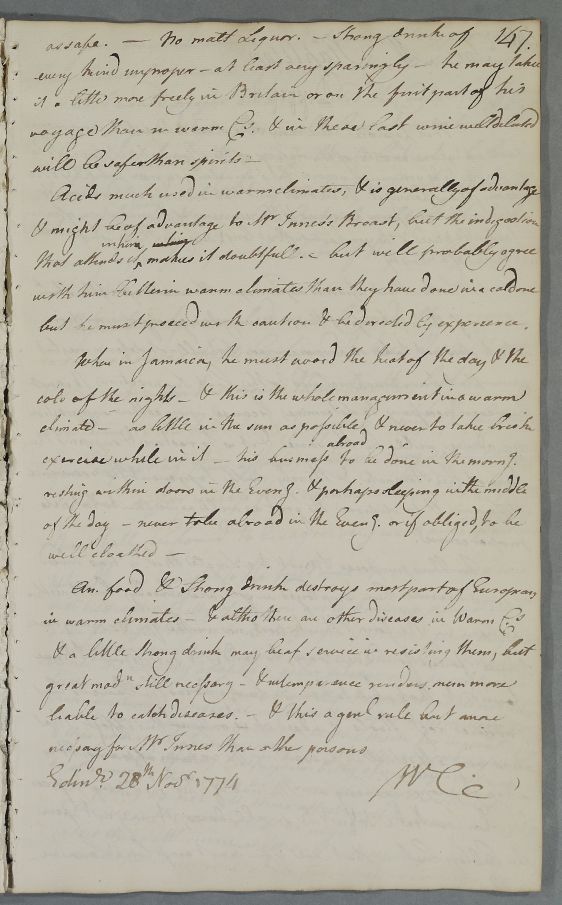 as safe. – No malt Liquor. – Strong drink of 147.
every kind improper – at least very sparingly – he may take
it a little more freely in Britain or on the first part of his
voyage than in warm Cs. & in these last wine well diluted
will be safer than spirits –
Acids much used in warm climates, & is generally of advantage
& might be of advantage to Mr Innes's Breast, but the indigestion
that attends it in him, makes it doubtfull. – but will probably agree
with him better in warm climates than they have done in a cold one
but he must proceed with caution & be directed by experience.
When in Jamaica, he must avoid the heat of the day & the
cold of the nights – & this is the whole management in a warm
climate – as little in the sun as possible, & never to take brisk
exercise while in it – his business abroad to be done in the morng.
resting within doors in the Eveng. & perhaps sleeping in the middle
of the day – never to be abroad in the Eveng. or if obliged, to be
well cloathed –
An. food & Strong drink destroys most part of Europeans
in warm climates – & altho there are other diseases in Warm Cs
& a little strong drink may be of service in resisting them, but
great modn still necessary – & intemperance renders men more
liable to catch diseases. – & this a genl rule but more
necessary for Mr Innes than other persons
Edinr. 28th Novr 1774 W C